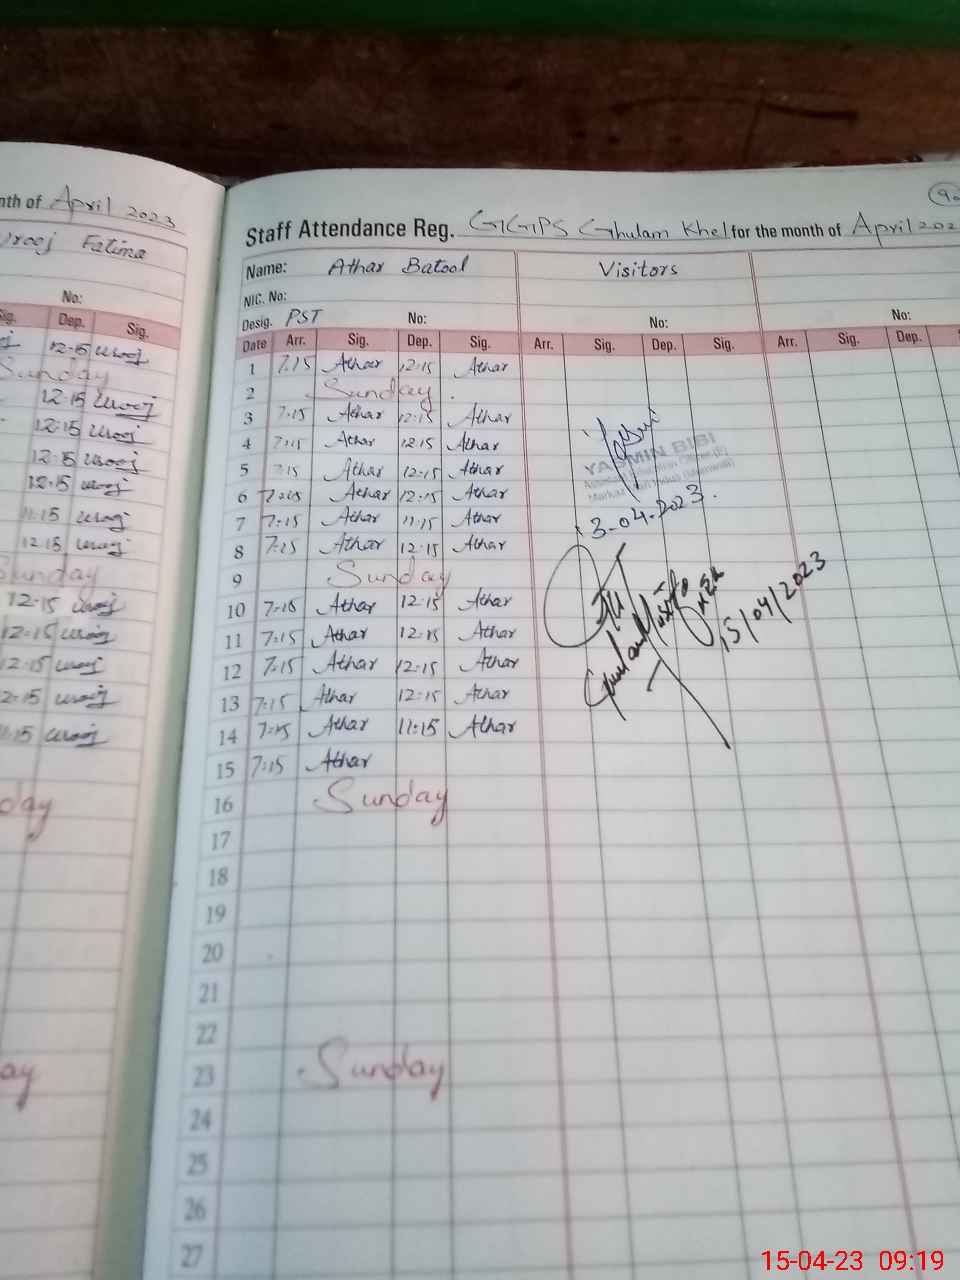 nth of April 2023
Urooj Fatima
No:
Sig. Dep. Sig.
12:15 urooj
Sunday
12:15 urooj
12:15 urooj
12:15 urooj
12:15 urooj
11:15 urooj
12:15 urooj
Sunday
12:15 urooj
12:15 urooj
12:15 urooj
2:15 urooj
11:15 urooj
day
ay
Staff Attendance Reg. GGPS Ghulam Khel for the month of April 202
Name: Athar Batool Visitors
NIC. No:
Desig. PST No: No: No:
Date Arr. Sig. Dep. Sig. Arr. Sig. Dep. Sig. Arr. Sig. Dep.
1 7:15 Athar 12:15 Athar
2 Sunday
3 7:15 Athar 12:15 Athar
4 7:15 Athar 12:15 Athar
5 7:15 Athar 12:15 Athar
6 7:15 Athar 12:15 Athar
7 7:15 Athar 11:15 Athar
8 7:15 Athar 12:15 Athar
9 Sunday
10 7:15 Athar 12:15 Athar
11 7:15 Athar 12:15 Athar
12 7:15 Athar 12:15 Athar
13 7:15 Athar 12:15 Athar
14 7:15 Athar 11:15 Athar
15 7:15 Athar
16 Sunday
17
18
19
20
21
22
23 Sunday
24
25
26
27
YASMIN BIBI
13-04-2023.
Ghulam Mustafa
15/04/2023
15-04-23 09:19